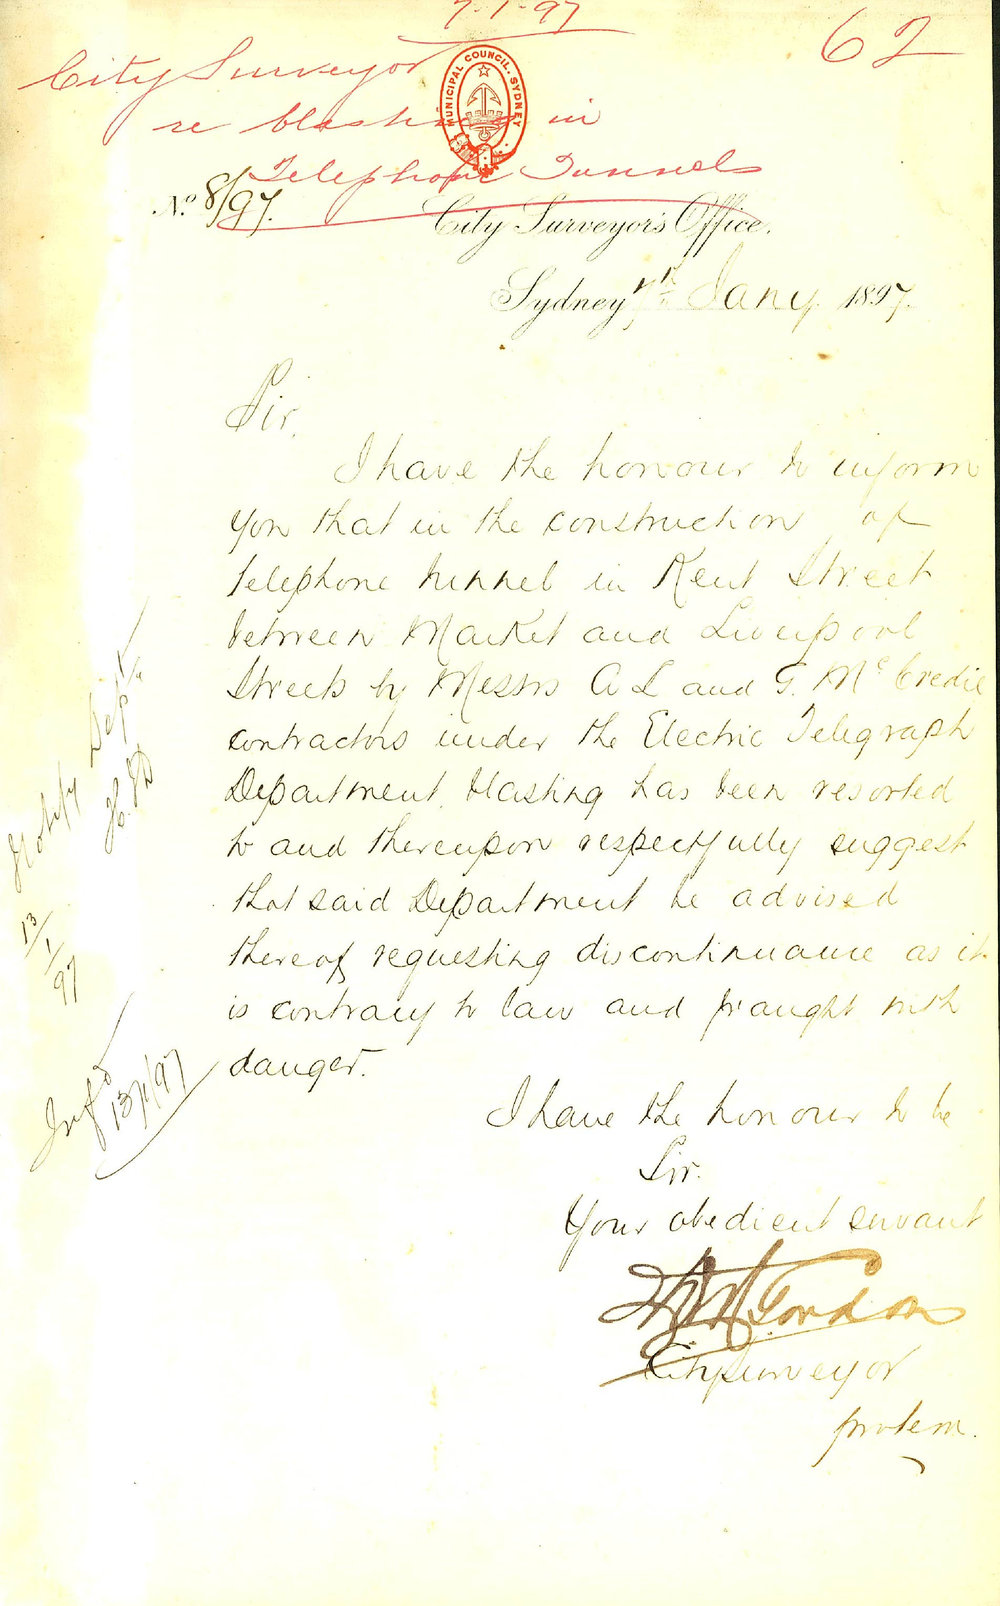 7-1-97
62
City Surveyor
MUNICIPAL COUNCIL. SYDNEY
re blasting in
Telephone Tunnels
No. 8/97.
City Surveyor's Office.
Sydney, 7th Jany 1897.
Sir,
I have the honour to inform
you that in the construction of
telephone tunnel in Kent Street
between Market and Liverpool
Streets by Messrs A L and G. McCredie
contractors under the Electric Telegraph
Department, blasting has been resorted
to and thereupon respectfully suggest
that said Department be advised
thereof requesting discontinuance as it
is contrary to law and fraught with
danger.
I have the honour to be
Sir.
Your obedient servant
Gordon
City Surveyor
protem.
Notify Dept
13/1/97
Infd
13/1/97